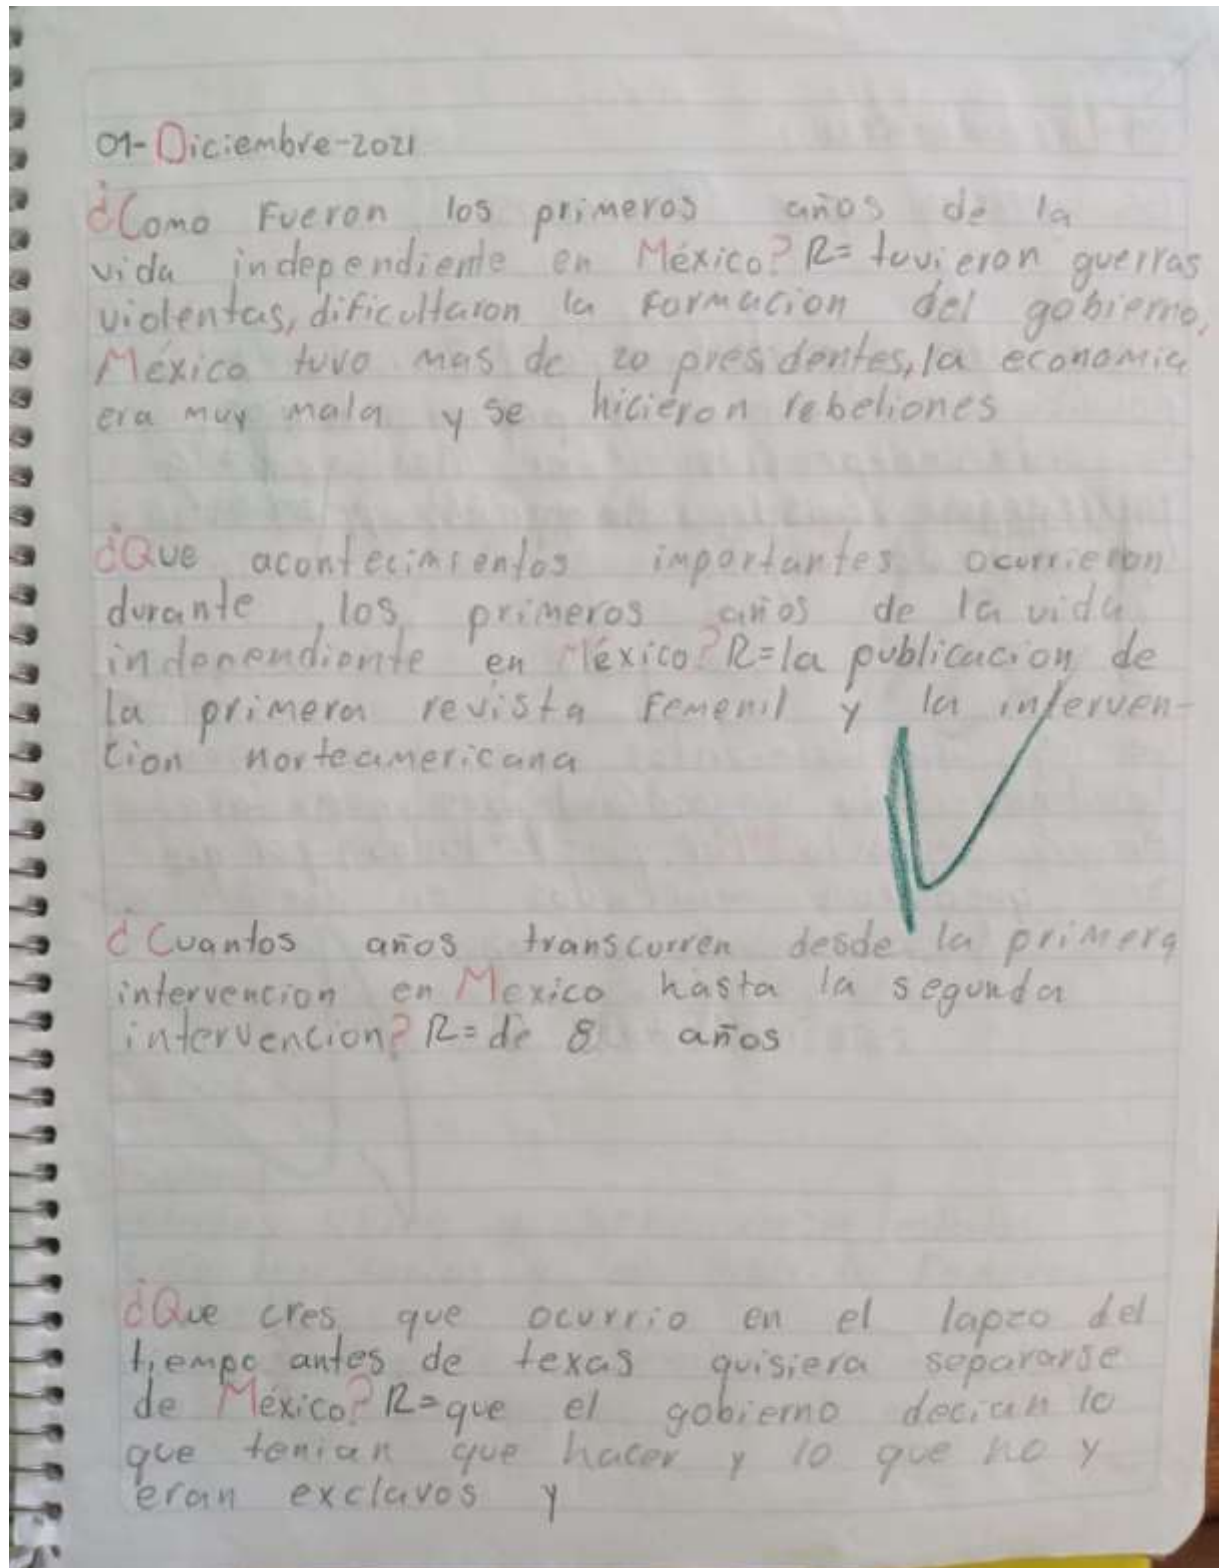 01-Diciembre-2021
¿Como Fueron los primeros años de la
vida independiente en México? R= tuvieron guerras
violentas, dificultaron la Formacion del gobierno,
México tuvo mas de 20 presidentes, la economia
era muy mala y se hicieron rebeliones
¿Que acontecimientos importantes ocurrieron
durante los primeros años de la vida
independiente en México? R=la publicacion de
la primera revista Femenil y la interven-
cion norteamericana
¿Cuantos años transcurren desde la primera
intervencion en Mexico hasta la segunda
intervencion? R= de 8 años
¿Que cres que ocurrio en el lapzo del
tiempo antes de texas quisiera separarse
de México? R= que el gobierno decian lo
que tenian que hacer y lo que no y
eran exclavos y